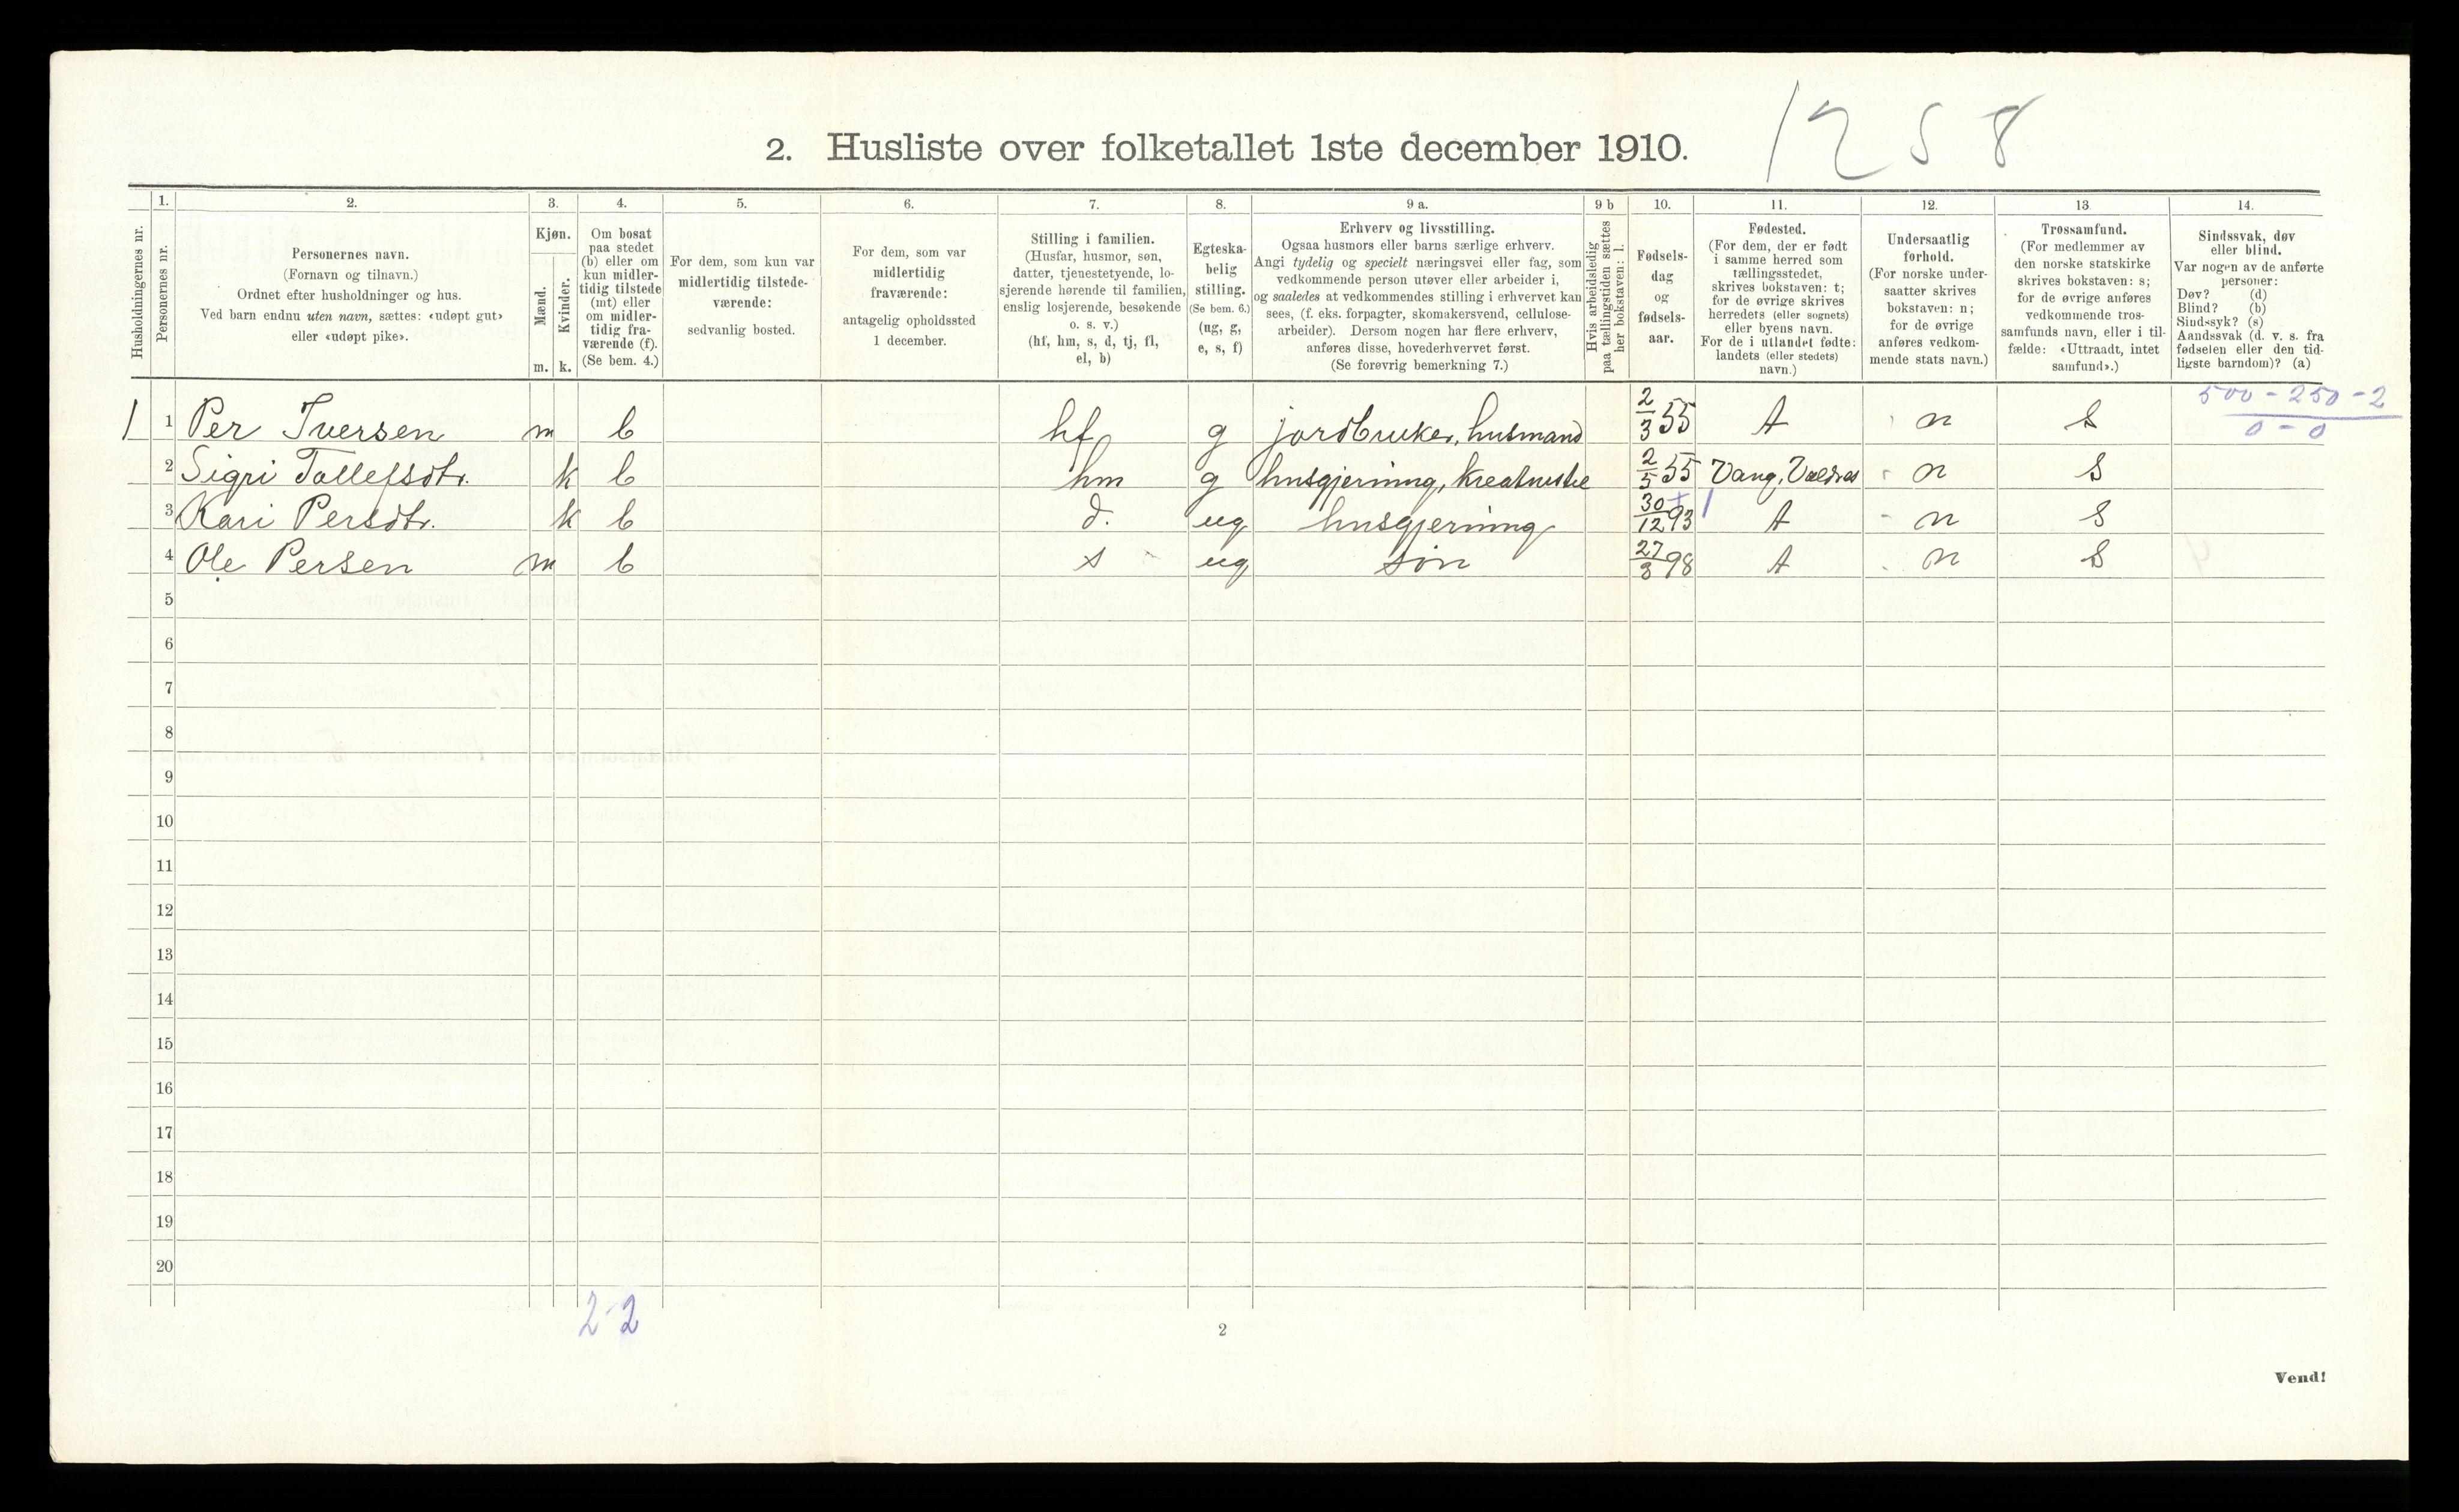 1258
2. Husliste over folketallet 1ste december 1910.
1. 2. 3. 4. 5. 6. 7. 8. 9 a. 9 b 10. 11. 12. 13 14.
Husholdningernes nr.
Personernes nr.
Personernes navn.
(Fornavn og tilnavn.)
Ordnet efter husholdninger og hus.
Ved barn endnu uten navn, sættes: «udøpt gut»
eller «udøpt pike».
Kjøn.
Mænd.
Kvinder.
m. k.
Om bosat
paa stedet
(b) eller om
kun midler-
tidig tilstede
(mt) eller
om midler-
tidig fra-
værende (f).
(Se bem. 4.)
For dem, som kun var
midlertidig tilstede-
værende:
sedvanlig bosted.
For dem, som var
midlertidig
fraværende:
antagelig opholdssted
1 december.
Stilling i familien.
(Husfar, husmor, søn,
datter, tjenestetyende, lo-
sjerende hørende til familien,
enslig losjerende, besøkende
o. s. v.)
(hf, hm, s, d, tj, fl,
el, b)
Egteska-
belig
stilling.
(Se bem. 6.)
(ug, g,
e, s, f)
Erhverv og livsstilling.
Ogsaa husmors eller barns særlige erhverv.
Angi tydelig og specielt næringsvei eller fag, som
vedkommende person utøver eller arbeider i,
og saaledes at vedkommendes stilling i erhvervet kan
sees, (f. eks. forpagter, skomakersvend, cellulose-
arbeider). Dersom nogen har flere erhverv,
anføres disse, hovederhvervet først.
(Se forøvrig bemerkning 7.)
Hvis arbeidsledig
paa tællingstiden sættes
her bokstaven: l.
Fødsels-
dag
og
fødsels-
aar.
Fødested.
(For dem, der er født
i samme herred som
tællingsstedet,
skrives bokstaven: t;
for de øvrige skrives
herredets (eller sognets)
eller byens navn.
For de i utlandet fødte:
landets (eller stedets)
navn.)
Undersaatlig
forhold.
(For norske under-
saatter skrives
bokstaven: n;
for de øvrige
anføres vedkom-
mende stats navn.)
Trossamfund.
(For medlemmer av
den norske statskirke
skrives bokstaven: s;
for de øvrige anføres
vedkommende tros-
samfunds navn, eller i til-
fælde: «Uttraadt, intet
samfund».)
Sindssvak, døv
eller blind.
Var nogen av de anførte
personer:
Døv? (d)
Blind? (b)
Sindssyk? (s)
Aandssvak (d. v. s. fra
fødselen eller den tid-
ligste barndom)? (a)
500-250-2
0-0
1 1 Per Iversen m b hf g jordbruker, husmand 2/3 55 t n s
2 Sigri Tollefsdtr. k b hm g husgjerning, kreaturstel 2/5 55 Vang, Valdres n s
3 Kari Persdtr. k b d. ug husgjerning 30/12 93 t n s
4 Ole Persen m b s ug søn 27/8 98 t n s
5
6
7
8
9
10
11
12
13
14
15
16
17
18
19
20
2-2
2
Vend!